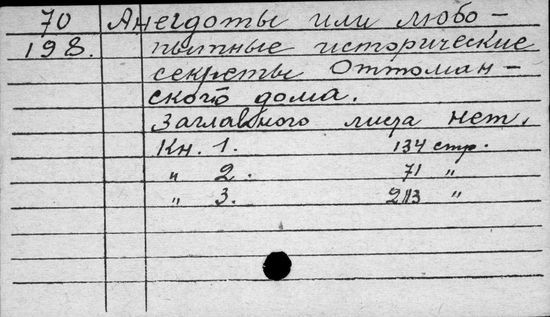 70 Анегдоты или любо-
198. пытные исторические
секреты Оттоман-
ского дома.
Заглавного листа нет.
Кн. 1. 134 стр.
„ 2. 71 „
„ 3. 213 „